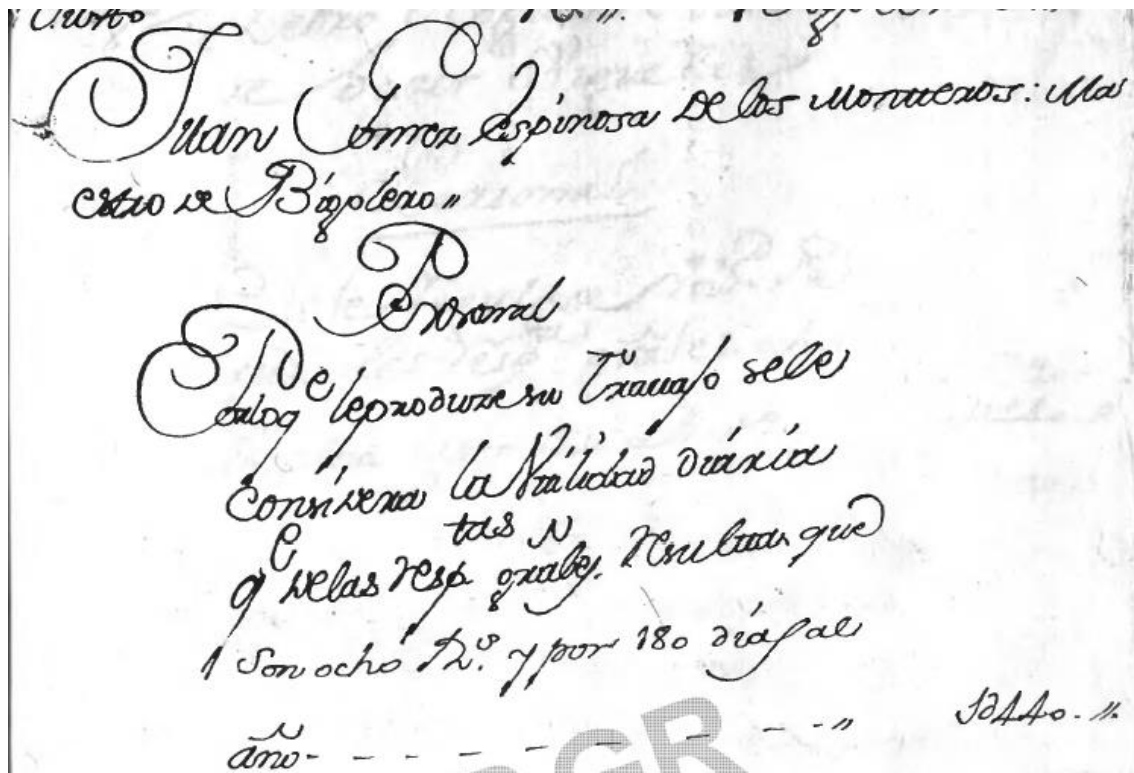 Juan Gomez Espinosa de los Monteros: Ma
estro de Bigolero„
Personal
Por lo q^e le produze su Travajo se le
Considera la Utilidad diária
q^e de las resp^tas grales. Resulta, que
Son ocho R^s. y por 180 días al
año - - - - - - - - „ 1∂440. „
GR